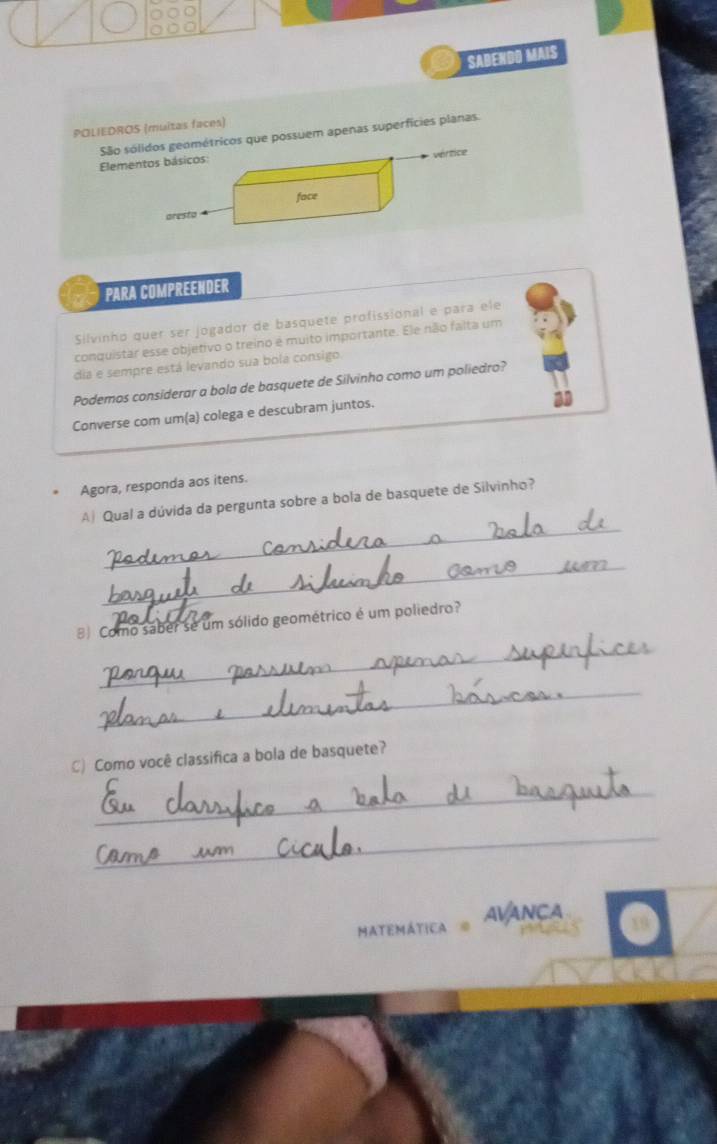 SABENDO MAIS
POLIEDROS (muitas faces)
São sólidos geométricos que possuem apenas superfícies planas.
Elementos básicos:
vértice
face
aresta
PARA COMPREENDER
Silvinho quer ser jogador de basquete profissional e para ele
conquistar esse objetivo o treino é muito importante. Ele não falta um
dia e sempre está levando sua bola consigo.
Podemos considerar a bola de basquete de Silvinho como um poliedro?
Converse com um(a) colega e descubram juntos.
• Agora, responda aos itens.
A) Qual a dúvida da pergunta sobre a bola de basquete de Silvinho?
Podemos considera a bola de
basquete de silvinho como um
polidro
B) Como saber se um sólido geométrico é um poliedro?
porque possuem apenas superfices
planas e elementos básicos.
C) Como você classifica a bola de basquete?
Eu classifico a bola de basquete
como um ciculo.
MATEMÁTICA
AVANÇA
mais
19